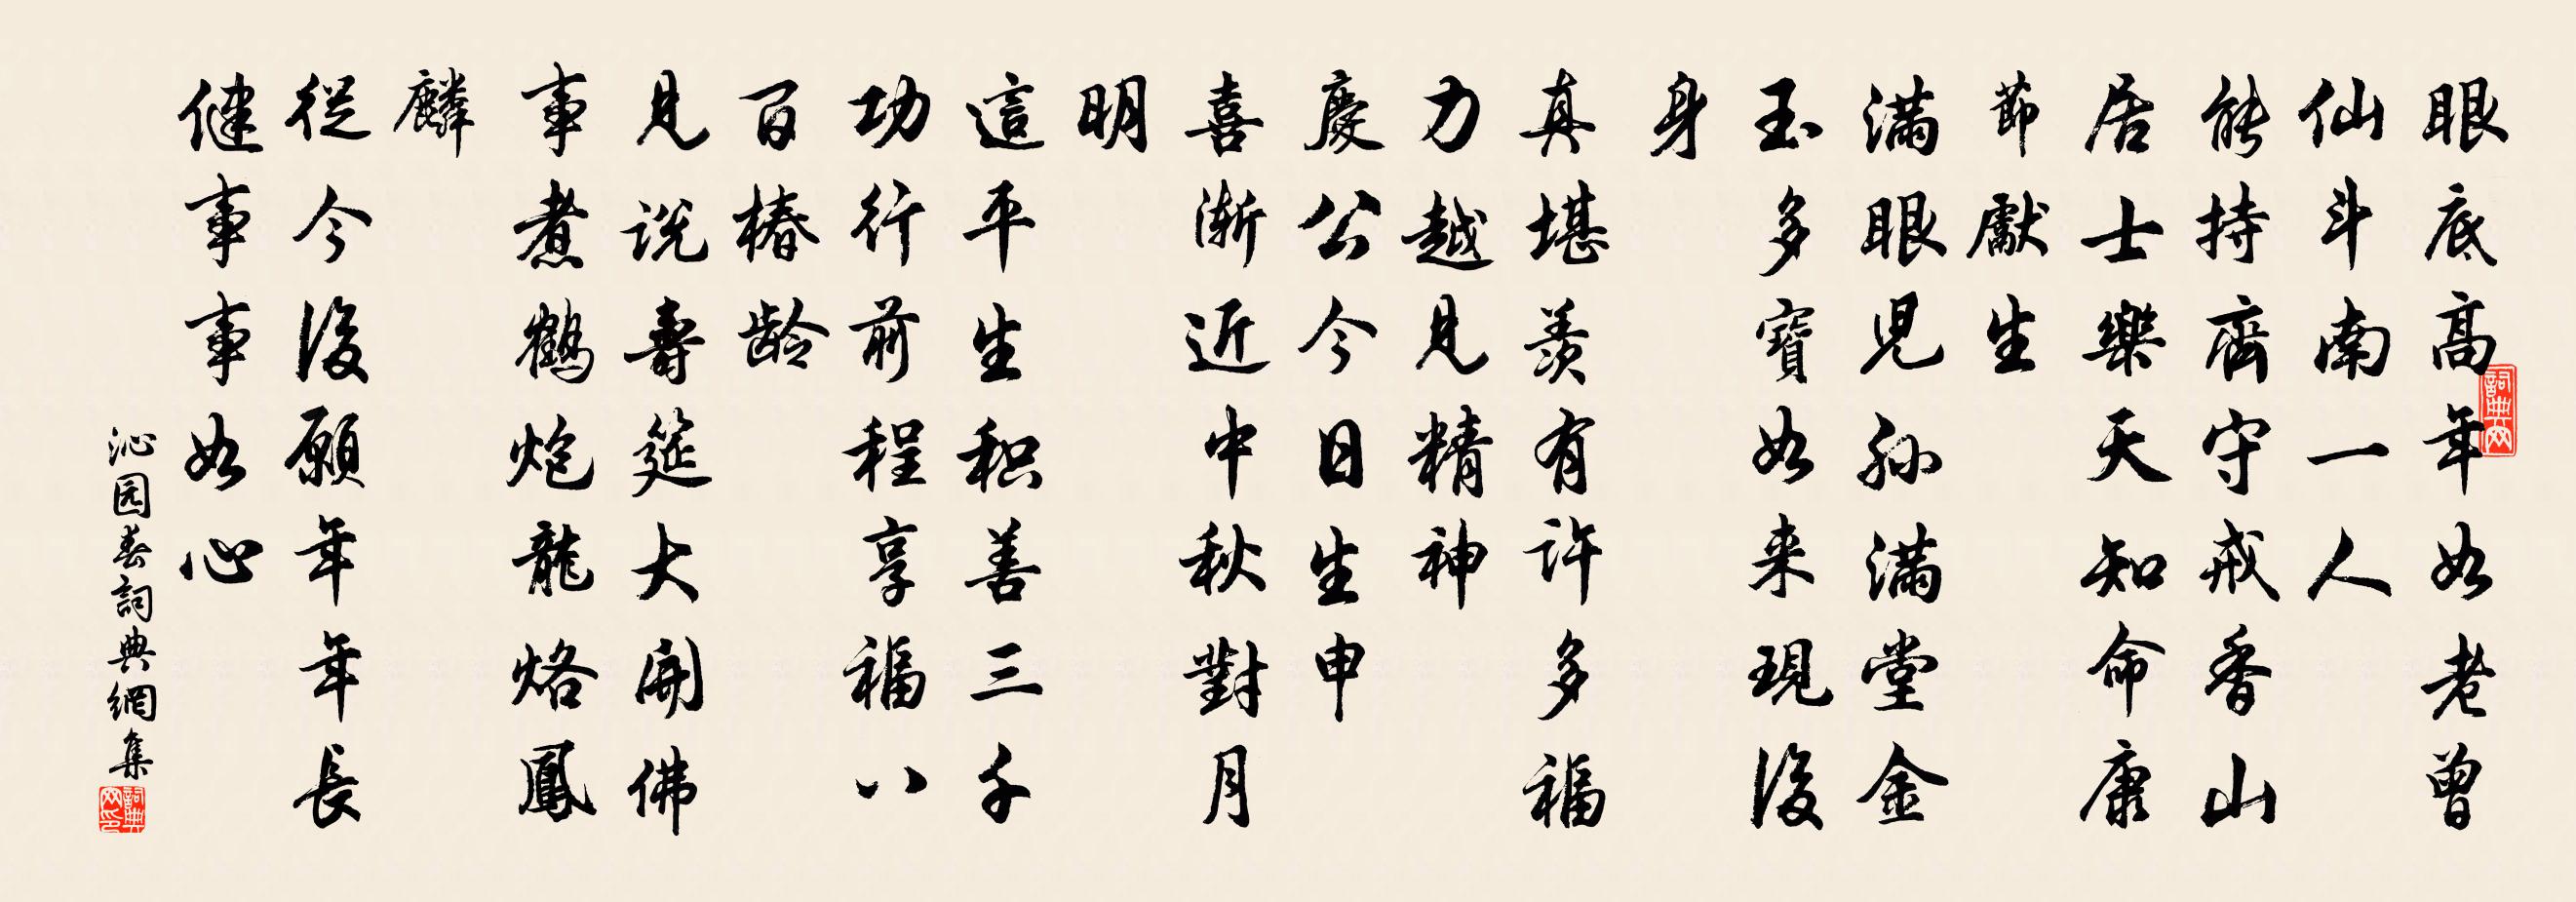 眼底高年如老曾
仙斗南一人
能持齋守戒香山
居士樂天知命康
節獻生
滿眼兒孫滿堂金
玉多寶如来現後
身
真堪羨有许多福
力越見精神
慶公今日生申
喜渐近中秋對月
明
這平生积善三千
功行前程享福八
百椿龄
見说壽筵大開佛
事煮鶴炮龍烙鳳
麟
從今後願年年長
健事事如心
沁园春詞典網集
詞典网
詞典网印